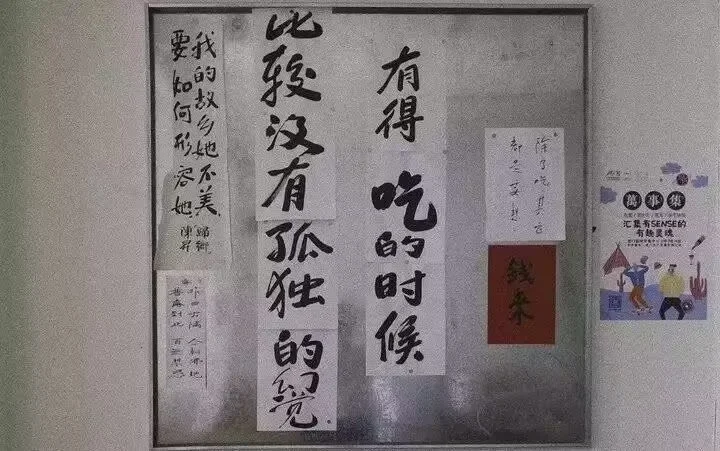 萬事集
汇集有SENSE的
有趣灵魂
除了吃其它
都是
錢来
有得吃的时候
比较没有孤独的幻觉
我的故乡她不美
要如何形容她
歸鄉
陳昇
到此 百無禁忌